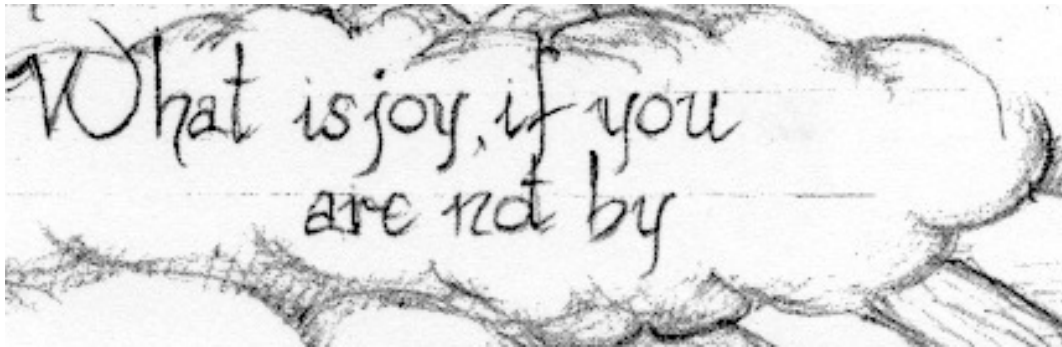 What is joy, if you
are not by